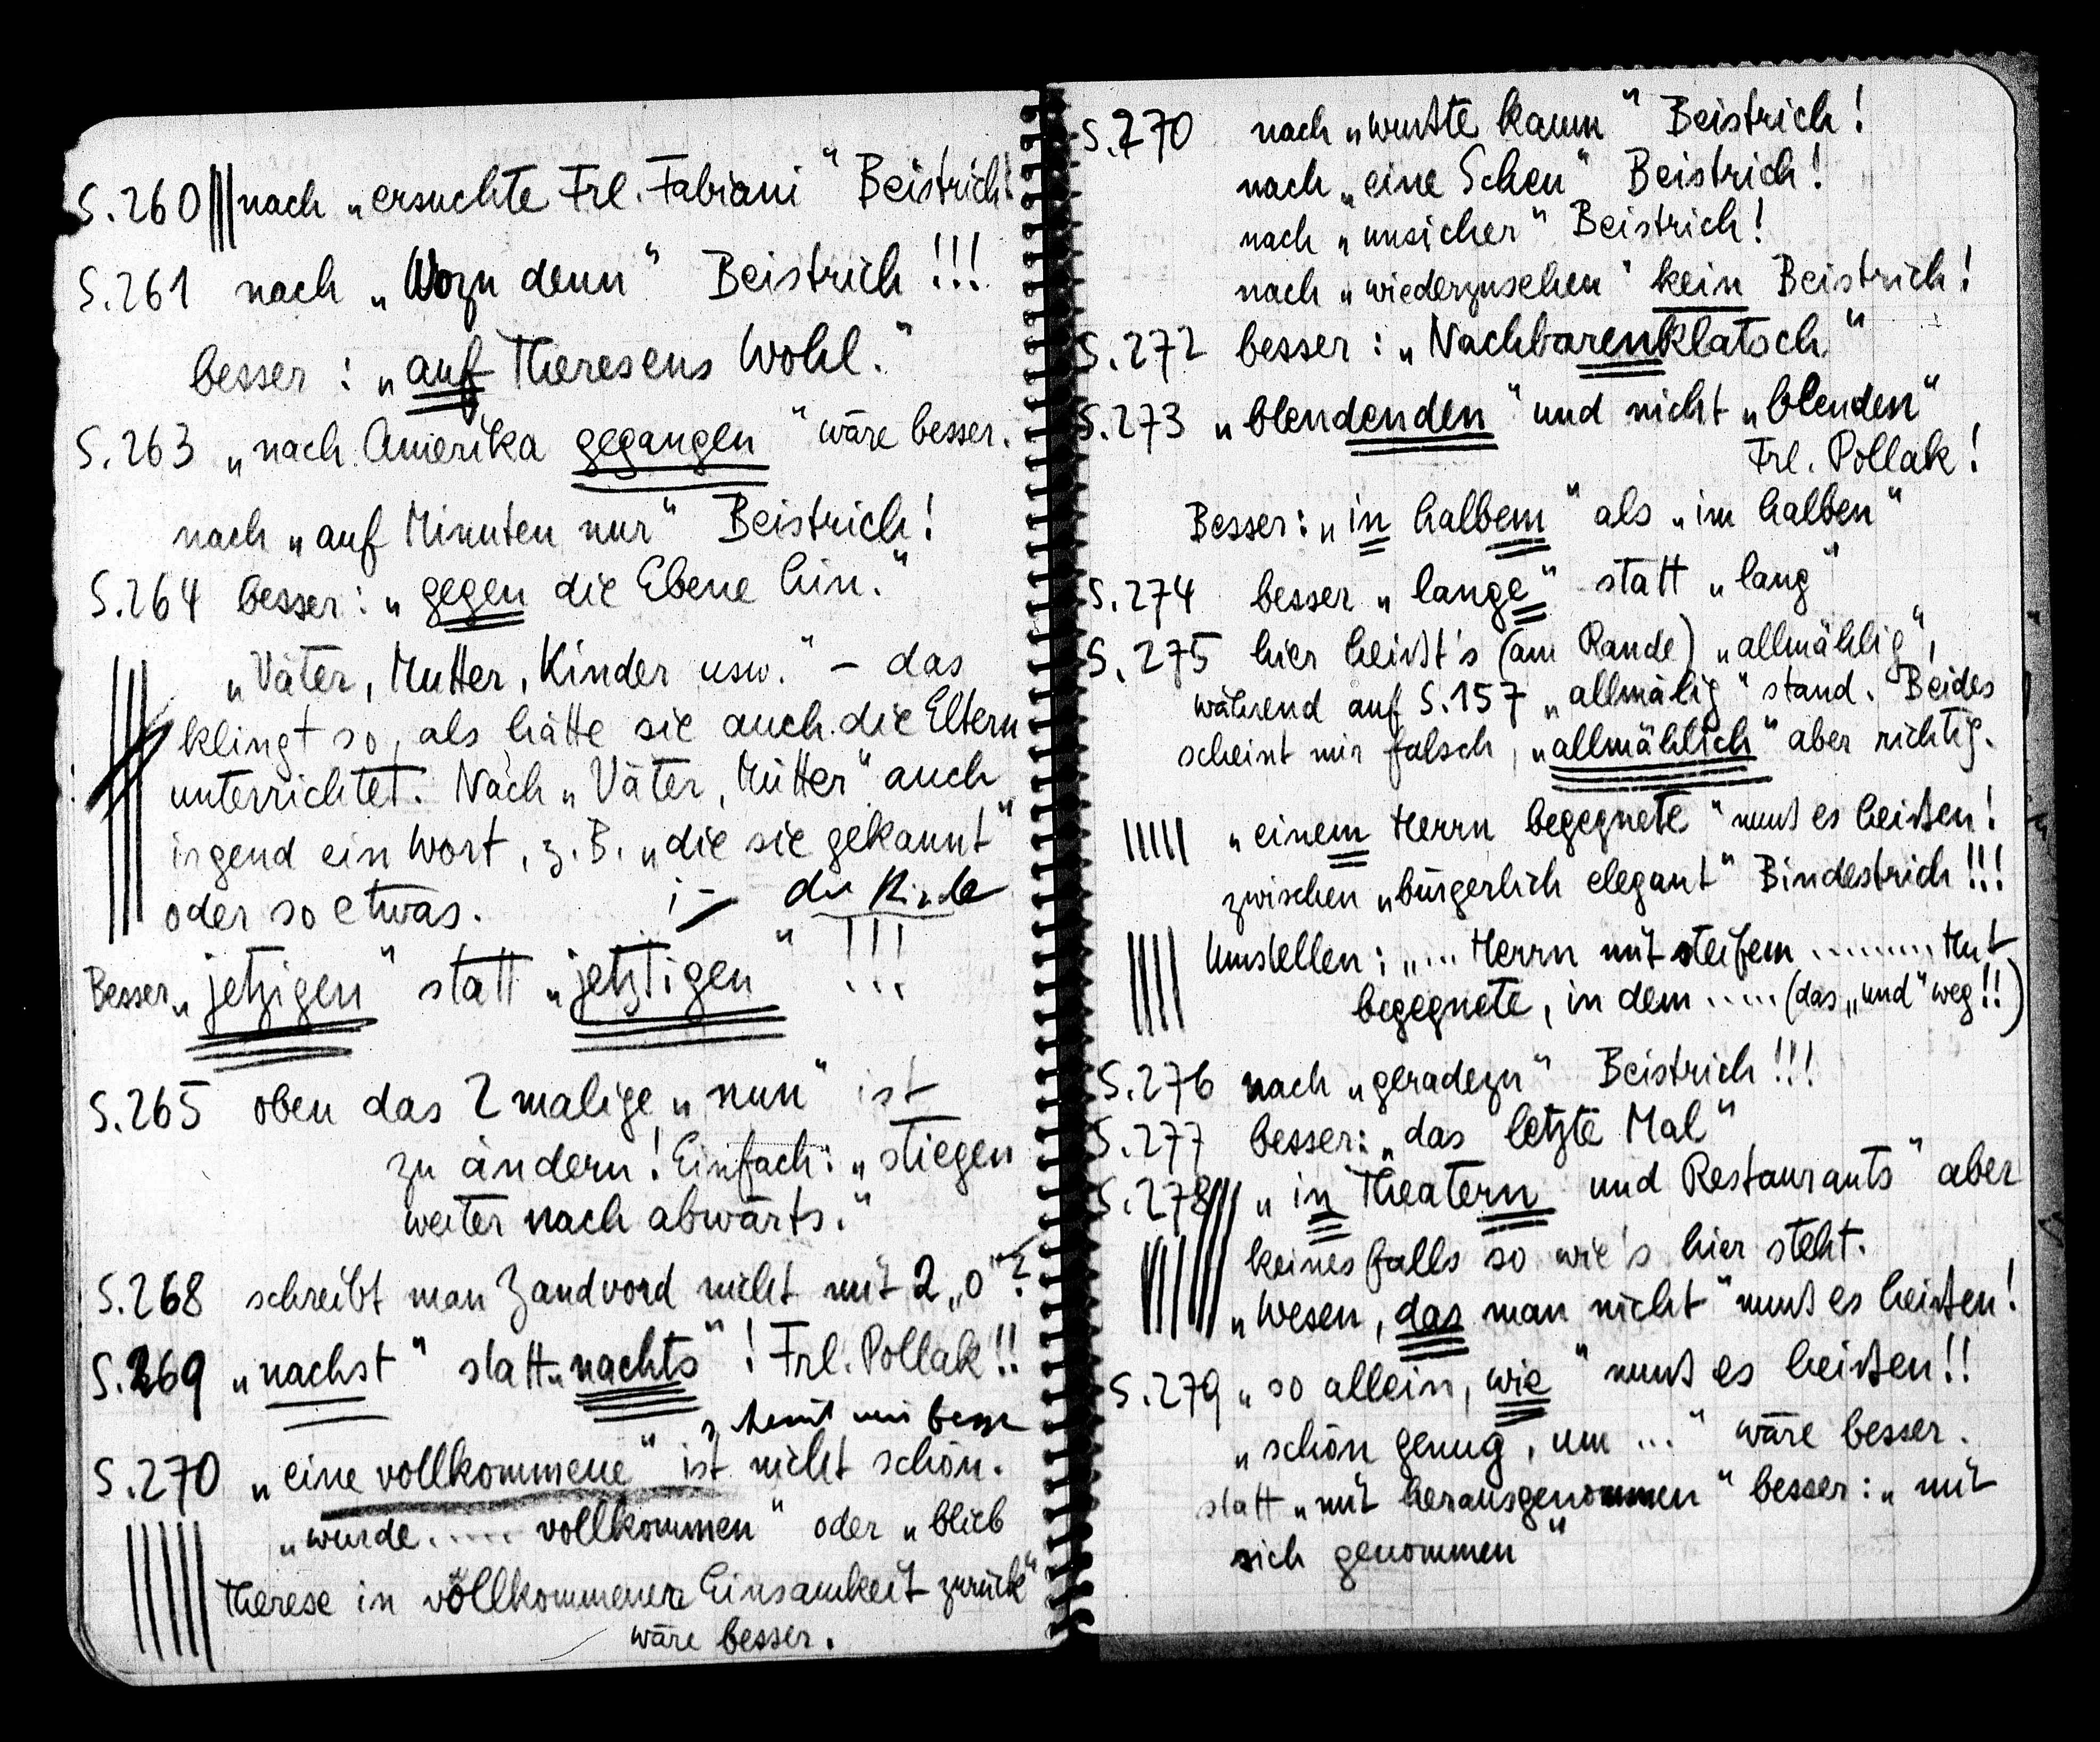 S.260 nach „ersuchte Frl. Fabiani“ Beistrich!
S.261 nach „Wozu denn“ Beistrich!!!
besser: „auf Theresens Wohl.“
S.263 „nach Amerika gegangen“ wäre besser.
nach „auf Minuten nur“ Beistrich!
S.264 besser: „gegen die Ebene hin.“
„Väter, Mütter, Kinder usw.“ – das
klingt so, als hätte sie auch die Eltern
unterrichtet. Nach „Väter, Mütter“ auch
irgend ein Wort, z.B. „die sie gekannt“
oder so etwas. die
Besser „jetzigen“ statt „jetztigen“ !!!
S.265 oben das 2malige „nun“ ist
zu ändern! Einfach: „stiegen
weiter nach abwärts.“
S.268 schreibt man Zandvord nicht mit 2 „o“?
S.269 „nachst“ statt „nachts“! Frl. Pollak!!
S.270 „eine vollkommene“ ist nicht schön.
„wurde..... vollkommen“ oder „blieb
Therese in vollkommener Einsamkeit zurück“
wäre besser.
S.270 nach „wußte kaum“ Beistrich!
nach „eine Scheu“ Beistrich!
nach „unsicher“ Beistrich!
nach „wiederzusehen“ kein Beistrich!
S.272 besser: „Nachbarenklatsch“
S.273 „blendenden“ und nicht „blenden“
Frl. Pollak!
Besser: „in halbem“ als „im halben“
S.274 besser „lange“ statt „lang“
S.275 hier heißt's (am Rande) „allmählig“,
während auf S.157 „allmälig“ stand. Beides
scheint mir falsch, „allmählich“ aber richtig.
„einem Herrn begegnete“ muß es heißen!
zwischen „bürgerlich elegant“ Bindestrich!!!
Umstellen: „... Herrn mit steifem ......... Hut
begegnete, in dem ..... (das „und“ weg!!)
S.276 nach „geradezu“ Beistrich!!!
S.277 besser: „das letzte Mal“
S.278 „in Theatern und Restaurants“ aber
keinesfalls so wie's hier steht.
„Wesen, das man nicht“ muß es heißen!
S.279 „so allein, wie“ muß es heißen!!
„schön genug, um ...“ wäre besser.
statt „mit herausgenommen“ besser: „mit
sich genommen“